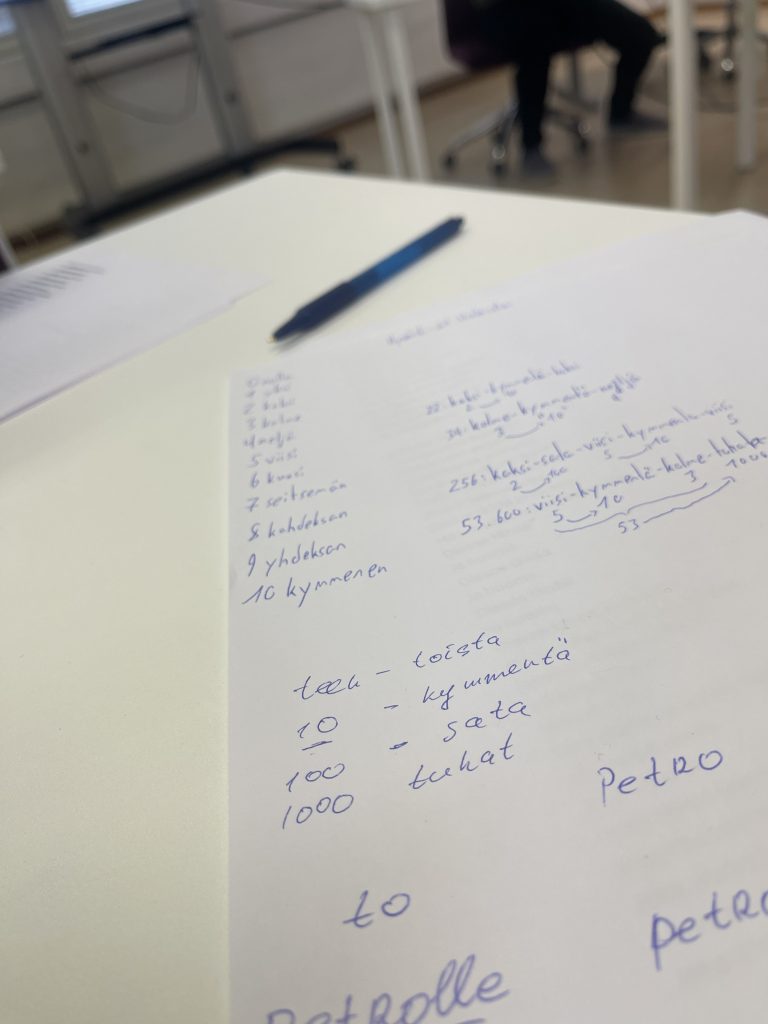 2 kaksi
3 kolme
4 neljä
5 viisi
6 kuusi
7 seitsemän
8 kahdeksan
9 yhdeksan
10 kymmenen
22: kaksi-kymmentä-kaksi
2 10
34: kolme-kymmentä-neljä
3 10
256: kaksi-sata-viisi-kymmentä-viisi
2 100 5 10 5
53.600: viisi-kymmentä-kolme-tuhatta
5 10 3 1000
53
teen - toista
10 - kymmentä
100 - sata
1000 tuhat
Petro
to
Petro
Petrolle